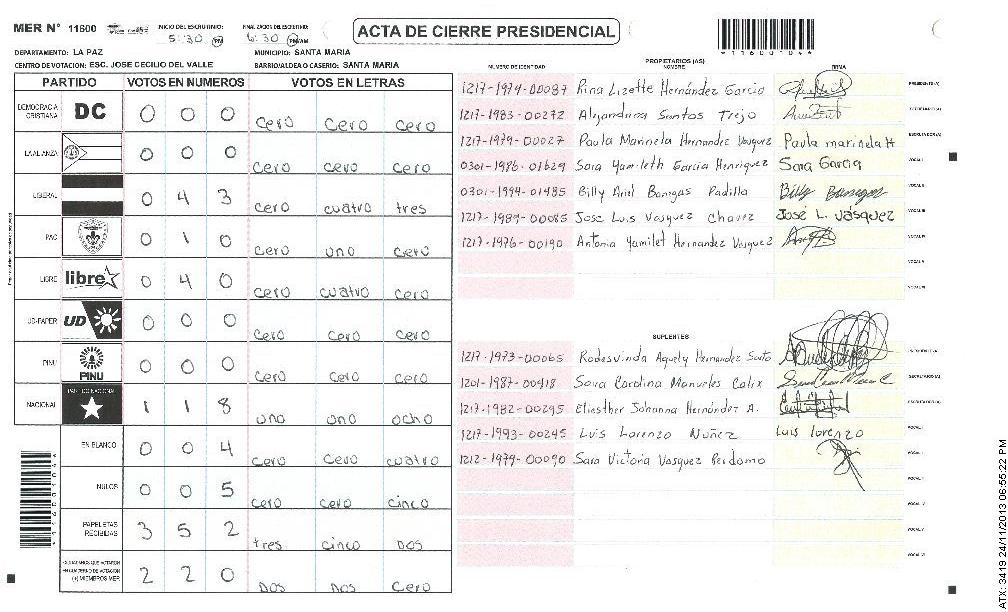 MER N° 11600 INICIO DEL ESCRUTINIO: 5:30 PM FINALIZACION DEL ESCRUTINIO 6:30 PM/AM
ACTA DE CIERRE PRESIDENCIAL
*11600104*
DEPARTAMENTO: LA PAZ MUNICIPIO: SANTA MARIA
CENTRO DE VOTACION: ESC. JOSE CECILIO DEL VALLE BARRIO/ALDEA O CASERIO: SANTA MARIA
PARTIDO VOTOS EN NUMEROS VOTOS EN LETRAS
DEMOCRACIA CRISTIANA DC 0 0 0 cero cero cero
LA ALIANZA 0 0 0 cero cero cero
LIBERAL 0 4 3 cero cuatro tres
PAC 0 1 0 cero uno cero
LIBRE libre 0 4 0 cero cuatro cero
UD-FAPER UD 0 0 0 cero cero cero
PINU PINU 0 0 0 cero cero cero
NACIONAL PARTIDO NACIONAL 1 1 8 uno uno ocho
EN BLANCO 0 0 4 cero cero cuatro
NULOS 0 0 5 cero cero cinco
PAPELETAS RECIBIDAS 3 5 2 tres cinco Dos
CIUDADANOS QUE VOTARON EN CUADERNO DE VOTACION (+) MIEMBROS MER 2 2 0 Dos Dos Cero
PROPIETARIOS (AS)
NUMERO DE IDENTIDAD NOMBRE FIRMA
1217-1974-00087 Rina Lizette Hernández Garcia PRESIDENTE (A)
1217-1983-00272 Alejandrina Santos Trejo SECRETARIO (A)
1217-1979-00027 Paula Marinela Hernandez Vasquez Paula marinela H ESCRUTADOR (A)
0301-1986-01629 Sara Yamileth Garcia Henriquez Sara Garcia VOCAL I
0301-1994-01485 Billy Ariel Banegas Padilla Billy Banegas VOCAL II
1217-1989-00085 Jose Luis Vasquez Chavez Jose L. Vásquez VOCAL III
1217-1976-00190 Antonia Yamilet Hernandez Vasquez VOCAL IV
VOCAL V
VOCAL VI
SUPLENTES
1217-1973-00065 Rodesvinda Aquely Hernandez Santo PRESIDENTE (A)
1201-1987-00418 Sara Carolina Manueles Calix SECRETARIO (A)
1217-1982-00295 Eliesther Johanna Hernández A. ESCRUTADOR (A)
1217-1993-00245 Luis Lorenzo Nuñez Luis lorenzo VOCAL I
1212-1979-00090 Sara Victoria Vasquez Perdomo
VOCAL IV
VOCAL V
VOCAL VI
ATX: 3419 24/11/2013 06:55:22 PM